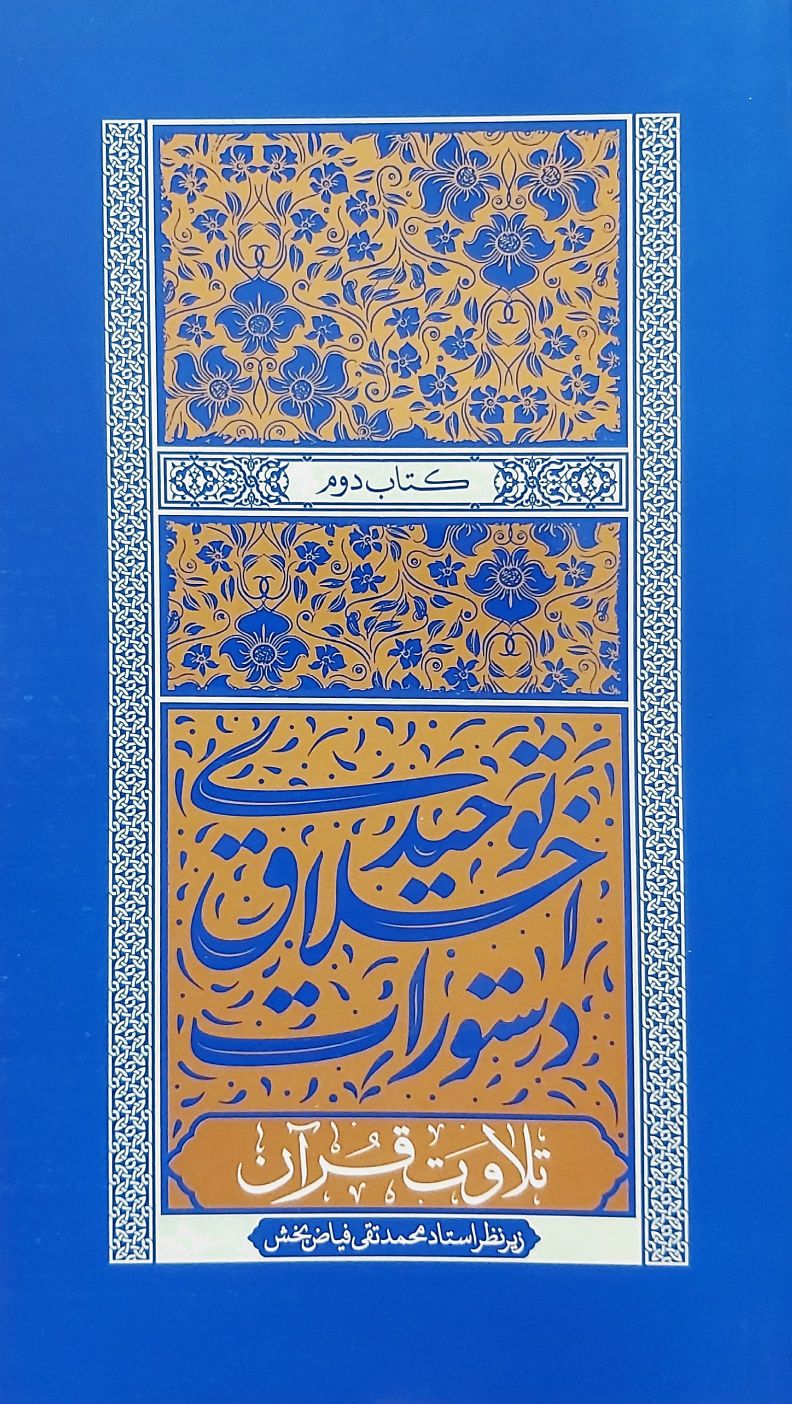 کتاب دوم
توحیدی
اخلاق
دستورات
تلاوت قرآن
زیر نظر استاد محمد تقی فیاض بخش